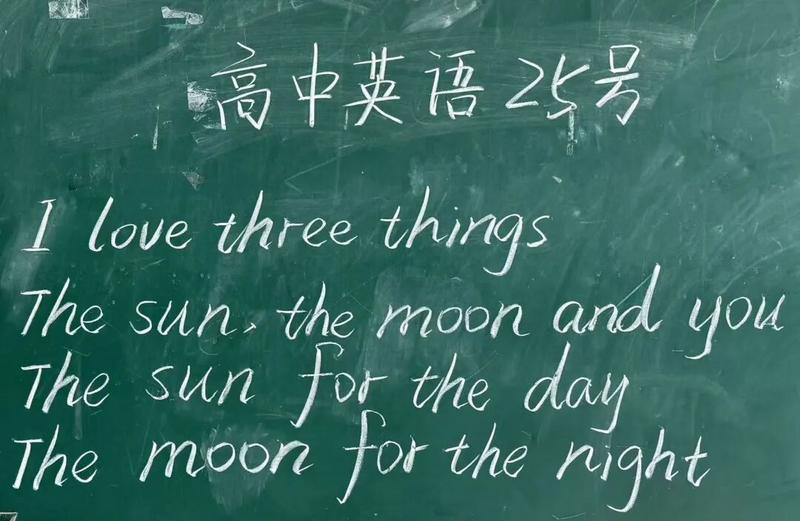 高中英语25号
I love three things
The sun, the moon and you
The sun for the day
The moon for the night